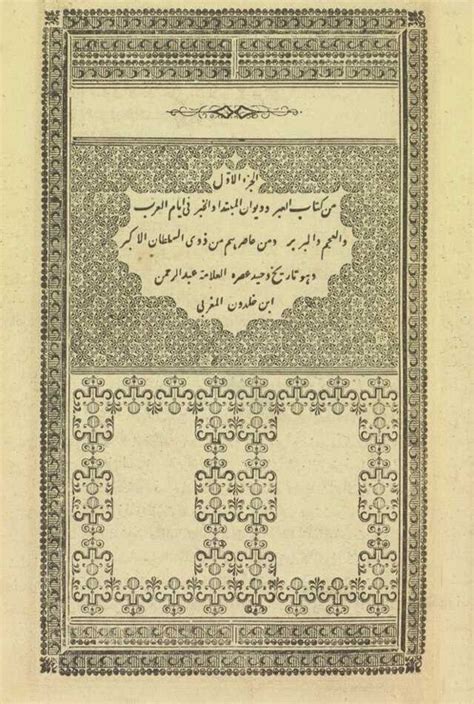 الجزء الاول
من كتاب العبر وديوان المبتدا والخبر فى ايام العرب
والعجم والبربر ومن عاصرهم من ذوى السلطان الاكبر
وهو تاريخ وحيد عصره العلامة عبد الرحمن
ابن خلدون المغربى